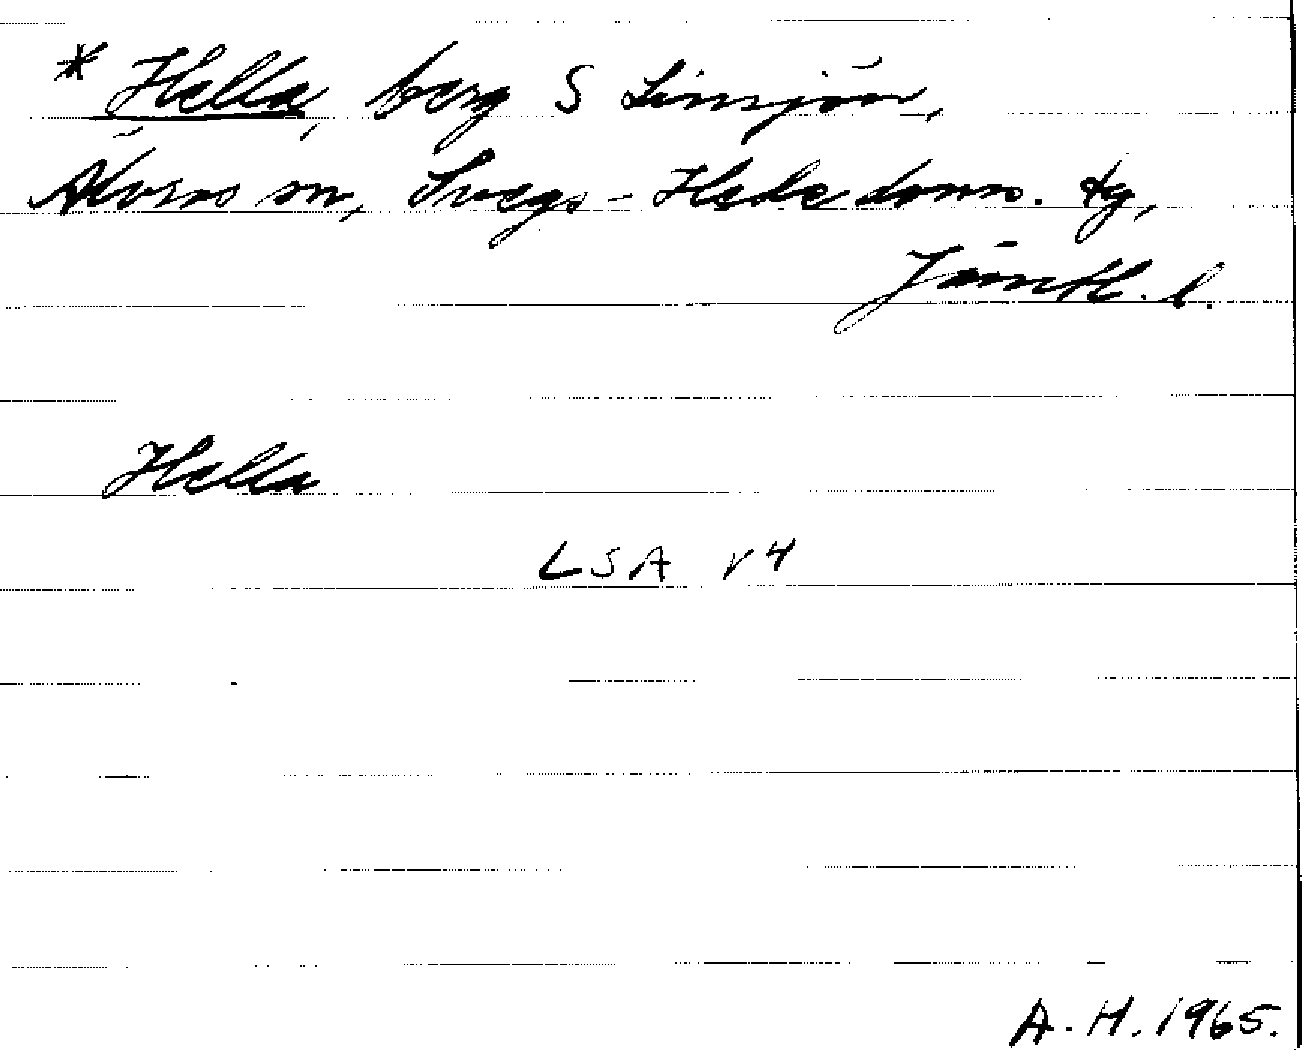 * Hella, berg S Linsjön,
Älvros sn, Svegs-Hede doms. tg,
Jämtl. l.
Hella
LSA r4
A.H. 1965.